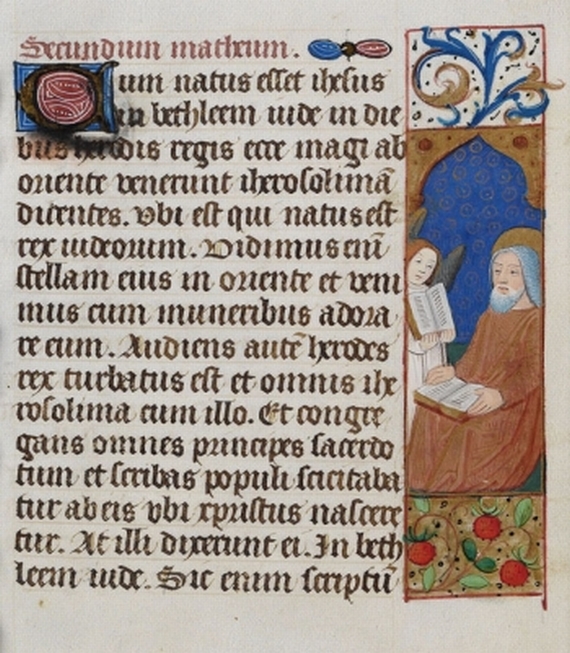 Secundum matheum.
Cum natus esset ihesus
in bethleem iude in die
bus herodis regis ecce magi ab
oriente venerunt iherosolimā
dicentes. Vbi est qui natus est
rex iudeorum. Vidimus enī
stellam eius in oriente et veni
mus cum muneribus adora
re eum. Audiens autē herodes
rex turbatus est et omnis ihe
rosolima cum illo. Et congre
gans omnes principes sacerdo
tum et scribas populi sciscitaba
tur ab eis vbi xpristus nascere
tur. At illi dixerunt ei. In beth
leem iude. Sic enim scriptū